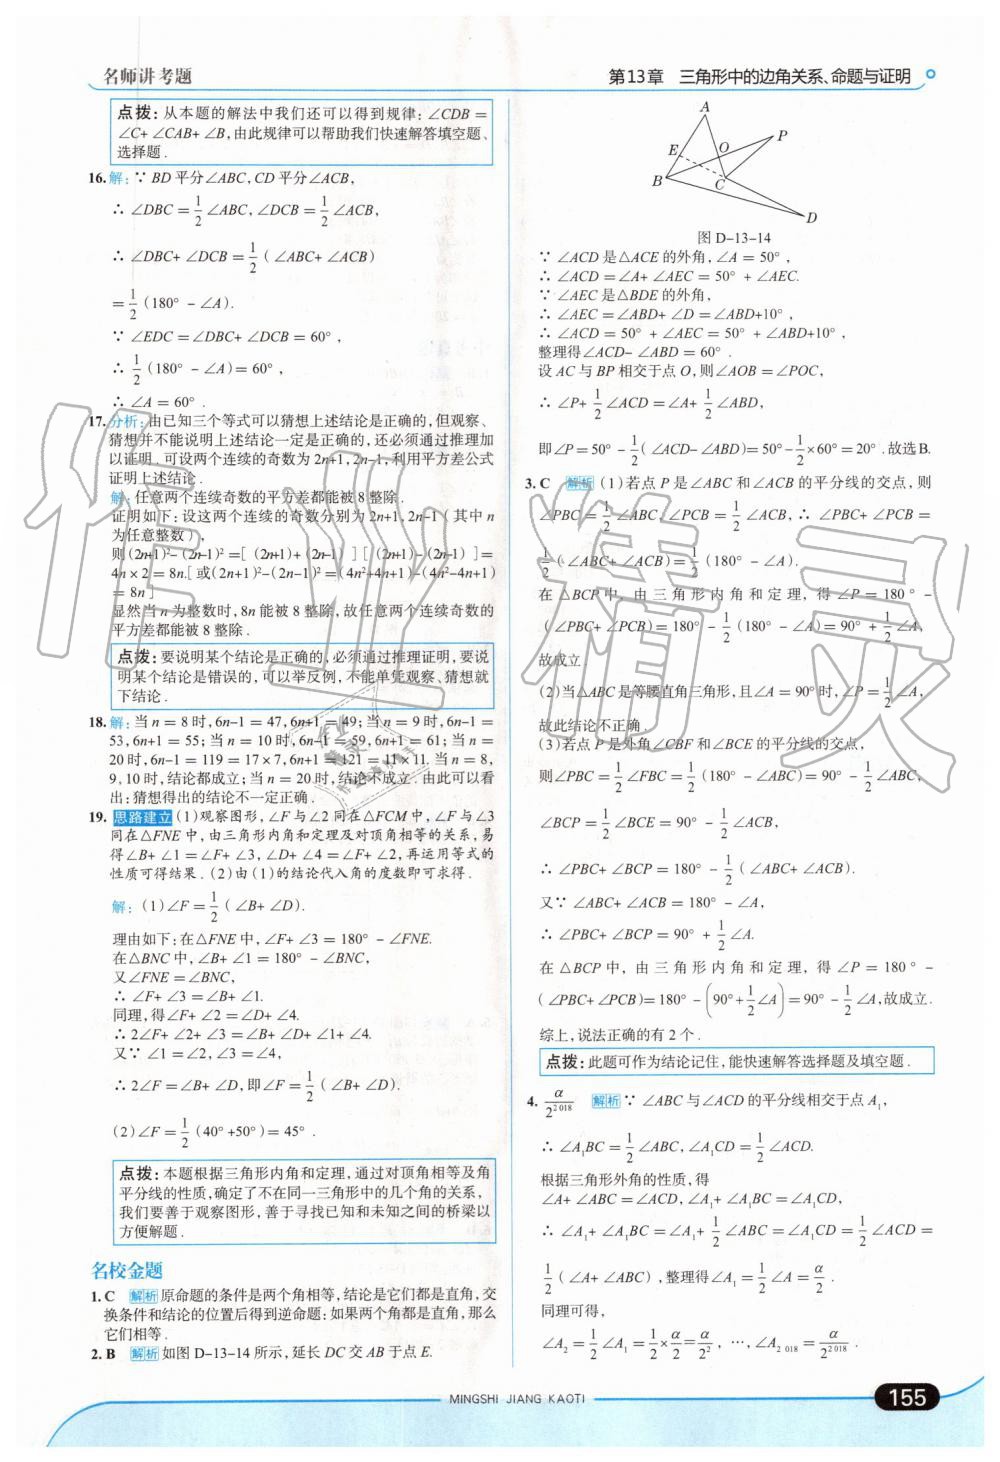 名师讲考题
第13章 三角形中的边角关系、命题与证明
点拨:从本题的解法中我们还可以得到规律:∠CDB=
∠C+∠CAB+∠B,由此规律可以帮助我们快速解答填空题、
选择题.
16.解:∵BD平分∠ABC,CD平分∠ACB,
∴∠DBC=1/2∠ABC,∠DCB=1/2∠ACB,
∴∠DBC+∠DCB=1/2(∠ABC+∠ACB)
=1/2(180°-∠A).
∵∠EDC=∠DBC+∠DCB=60°,
∴1/2(180°-∠A)=60°,
∴∠A=60°.
17.分析:由已知三个等式可以猜想上述结论是正确的,但观察、
猜想并不能说明上述结论一定是正确的,还必须通过推理加
以证明.可设两个连续的奇数为2n+1,2n-1,利用平方差公式
证明上述结论.
解:任意两个连续奇数的平方差都能被8整除.
证明如下:设这两个连续的奇数分别为2n+1,2n-1(其中n
为任意整数),
则(2n+1)²-(2n-1)²=[(2n+1)+(2n-1)][(2n+1)-(2n-1)]=
4n×2=8n.[或(2n+1)²-(2n-1)²=(4n²+4n+1)-(4n²-4n+1)
=8n]
显然当n为整数时,8n能被8整除,故任意两个连续奇数的
平方差都能被8整除.
点拨:要说明某个结论是正确的,必须通过推理证明,要说
明某个结论是错误的,可以举反例,不能单凭观察、猜想就
下结论.
18.解:当n=8时,6n-1=47,6n+1=49;当n=9时,6n-1=
53,6n+1=55;当n=10时,6n-1=59,6n+1=61;当n=
20时,6n-1=119=17×7,6n+1=121=11×11.当n=8,
9,10时,结论都成立;当n=20时,结论不成立.由此可以看
出:猜想得出的结论不一定正确.
19.思路建立(1)观察图形,∠F与∠2同在△FCM中,∠F与∠3
同在△FNE中,由三角形内角和定理及对顶角相等的关系,易
得∠B+∠1=∠F+∠3,∠D+∠4=∠F+∠2,再运用等式的
性质可得结果.(2)由(1)的结论代入角的度数即可求得.
解:(1)∠F=1/2(∠B+∠D).
理由如下:在△FNE中,∠F+∠3=180°-∠FNE.
在△BNC中,∠B+∠1=180°-∠BNC,
又∠FNE=∠BNC,
∴∠F+∠3=∠B+∠1.
同理,得∠F+∠2=∠D+∠4.
∴2∠F+∠2+∠3=∠B+∠D+∠1+∠4.
又∵∠1=∠2,∠3=∠4,
∴2∠F=∠B+∠D,即∠F=1/2(∠B+∠D).
(2)∠F=1/2(40°+50°)=45°.
点拨:本题根据三角形内角和定理,通过对顶角相等及角
平分线的性质,确定了不在同一三角形中的几个角的关系,
我们要善于观察图形,善于寻找已知和未知之间的桥梁以
方便解题.
名校金题
1.C 解析 原命题的条件是两个角相等,结论是它们都是直角,交
换条件和结论的位置后得到逆命题:如果两个角都是直角,那么
它们相等.
2.B 解析 如图D-13-14所示,延长DC交AB于点E.
A
P
E
O
B
C
D
图D-13-14
∵∠ACD是△ACE的外角,∠A=50°,
∴∠ACD=∠A+∠AEC=50°+∠AEC.
∵∠AEC是△BDE的外角,
∴∠AEC=∠ABD+∠D=∠ABD+10°,
∴∠ACD=50°+∠AEC=50°+∠ABD+10°,
整理得∠ACD-∠ABD=60°.
设AC与BP相交于点O,则∠AOB=∠POC,
∴∠P+1/2∠ACD=∠A+1/2∠ABD,
即∠P=50°-1/2(∠ACD-∠ABD)=50°-1/2×60°=20°.故选B.
3.C 解析 (1)若点P是∠ABC和∠ACB的平分线的交点,则
∠PBC=1/2∠ABC,∠PCB=1/2∠ACB,∴∠PBC+∠PCB=
1/2(∠ABC+∠ACB)=1/2(180°-∠A).
在△BCP中,由三角形内角和定理,得∠P=180°-
(∠PBC+∠PCB)=180°-1/2(180°-∠A)=90°+1/2∠A,
故成立.
(2)当△ABC是等腰直角三角形,且∠A=90°时,∠P=1/2∠A,
故此结论不正确.
(3)若点P是外角∠CBF和∠BCE的平分线的交点,
则∠PBC=1/2∠FBC=1/2(180°-∠ABC)=90°-1/2∠ABC,
∠BCP=1/2∠BCE=90°-1/2∠ACB,
∴∠PBC+∠BCP=180°-1/2(∠ABC+∠ACB).
又∵∠ABC+∠ACB=180°-∠A,
∴∠PBC+∠BCP=90°+1/2∠A.
在△BCP中,由三角形内角和定理,得∠P=180°-
(∠PBC+∠PCB)=180°-(90°+1/2∠A)=90°-1/2∠A,故成立.
综上,说法正确的有2个.
点拨:此题可作为结论记住,能快速解答选择题及填空题.
4. α/2^2018 解析 ∵∠ABC与∠ACD的平分线相交于点A₁,
∴∠A₁BC=1/2∠ABC,∠A₁CD=1/2∠ACD.
根据三角形外角的性质,得
∠A+∠ABC=∠ACD,∠A₁+∠A₁BC=∠A₁CD,
∴∠A₁+∠A₁BC=∠A₁+1/2∠ABC=∠A₁CD=1/2∠ACD=
1/2(∠A+∠ABC),整理得∠A₁=1/2∠A=α/2.
同理可得,
∠A₂=1/2∠A₁=1/2×α/2=α/2²,…,∠A₂₀₁₈=α/2^2018.
MINGSHI JIANG KAOTI
155
作业精灵